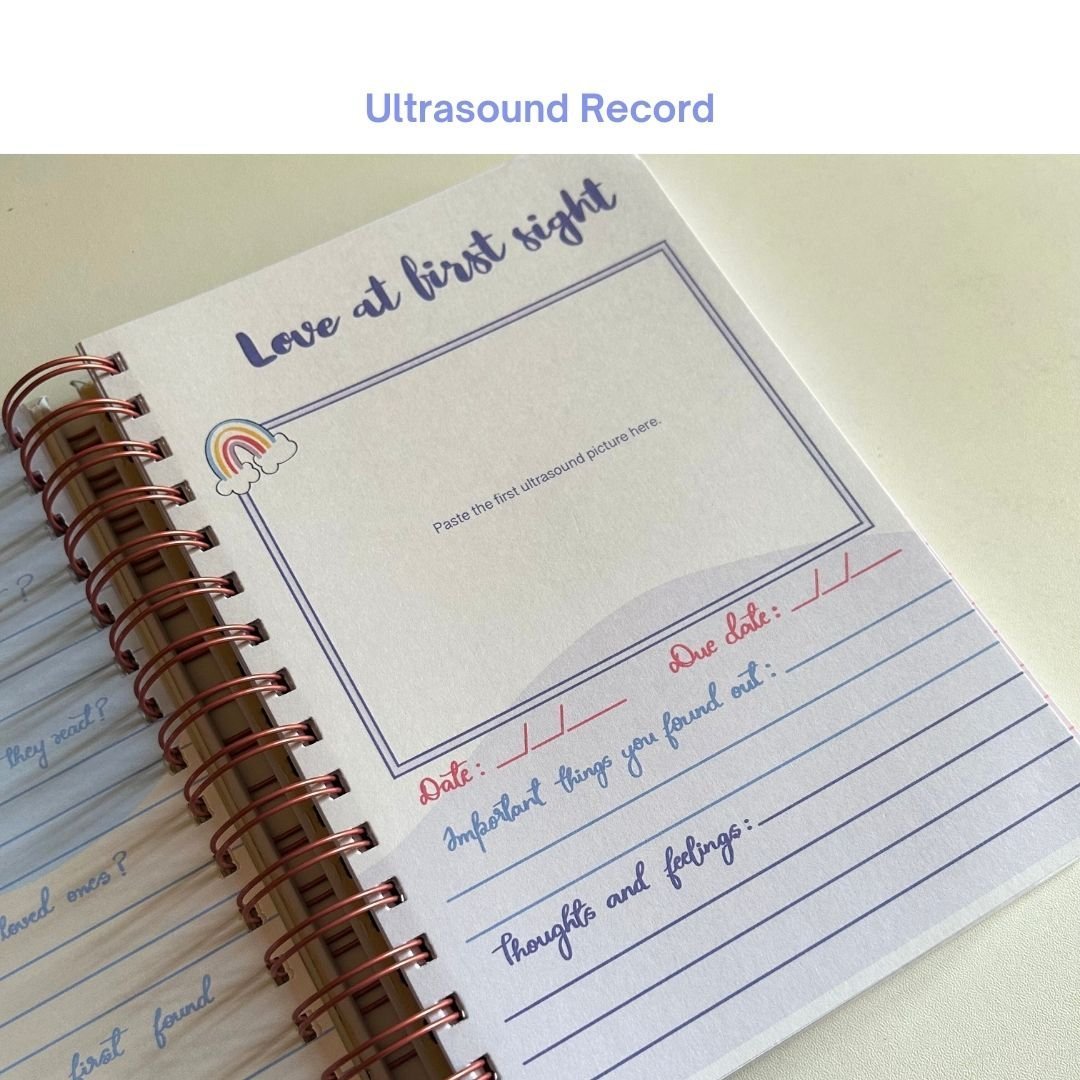 Ultrasound Record
Love at first sight
Paste the first ultrasound picture here.
Date: __/__/____ Due date: __/__/____
Important things you found out:
Thoughts and feelings:
?
they read?
loved ones?
first found